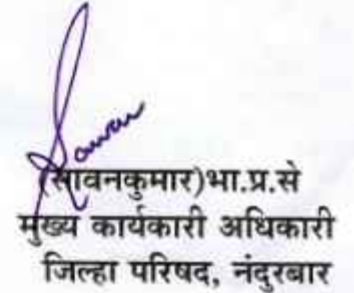 Sawan
(सावनकुमार)भा.प्र.से
मुख्य कार्यकारी अधिकारी
जिल्हा परिषद, नंदुरबार